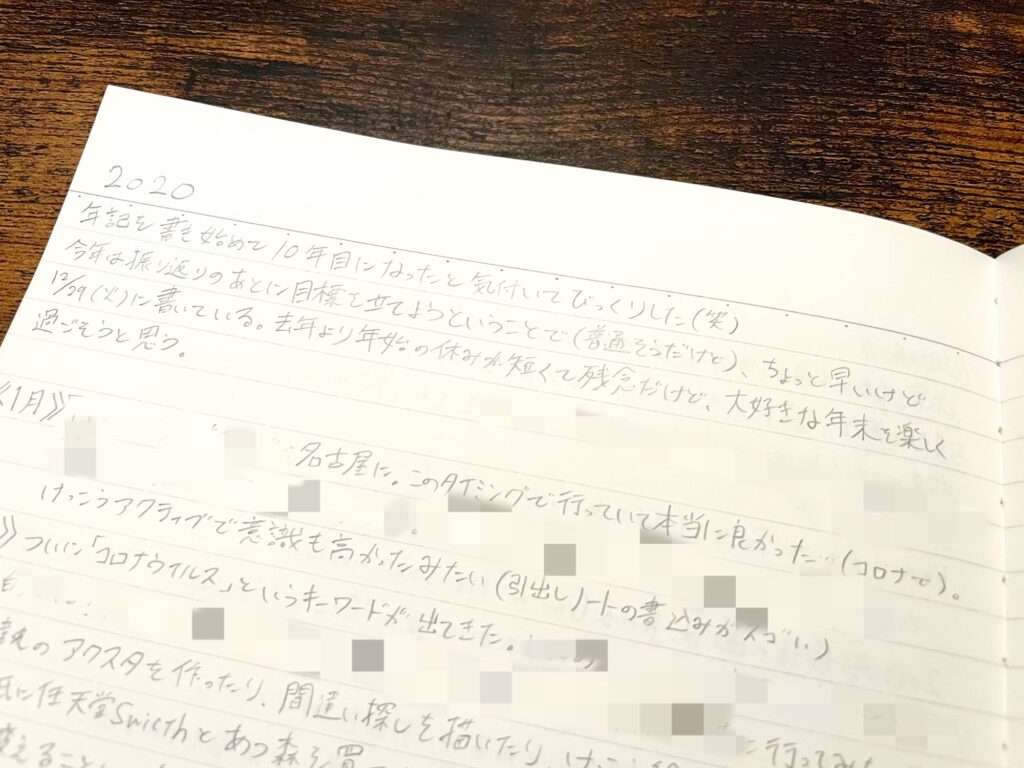 2020
年記を書き始めて10年目になったと気付いてびっくりした(笑)
今年は振り返りのあとに目標を立てようということで(普通そうだけど)、ちょっと早いけど
12/29(火)に書いている。去年より年始の休みが短くて残念だけど、大好きな年末を楽しく
過ごそうと思う。
《1月》
名古屋に。このタイミングで行っていて本当に良かった…(コロナで)。
けっこうアクティブで意識も高かったみたい(引出しノートの書込みがスゴい)
》ついに「コロナウイルス」というキーワードが出てきた。
のアクスタを作ったり、間違い探しを描いたり、けっこう
に行ってみ
に任天堂Swicthとあつ森を買
えること